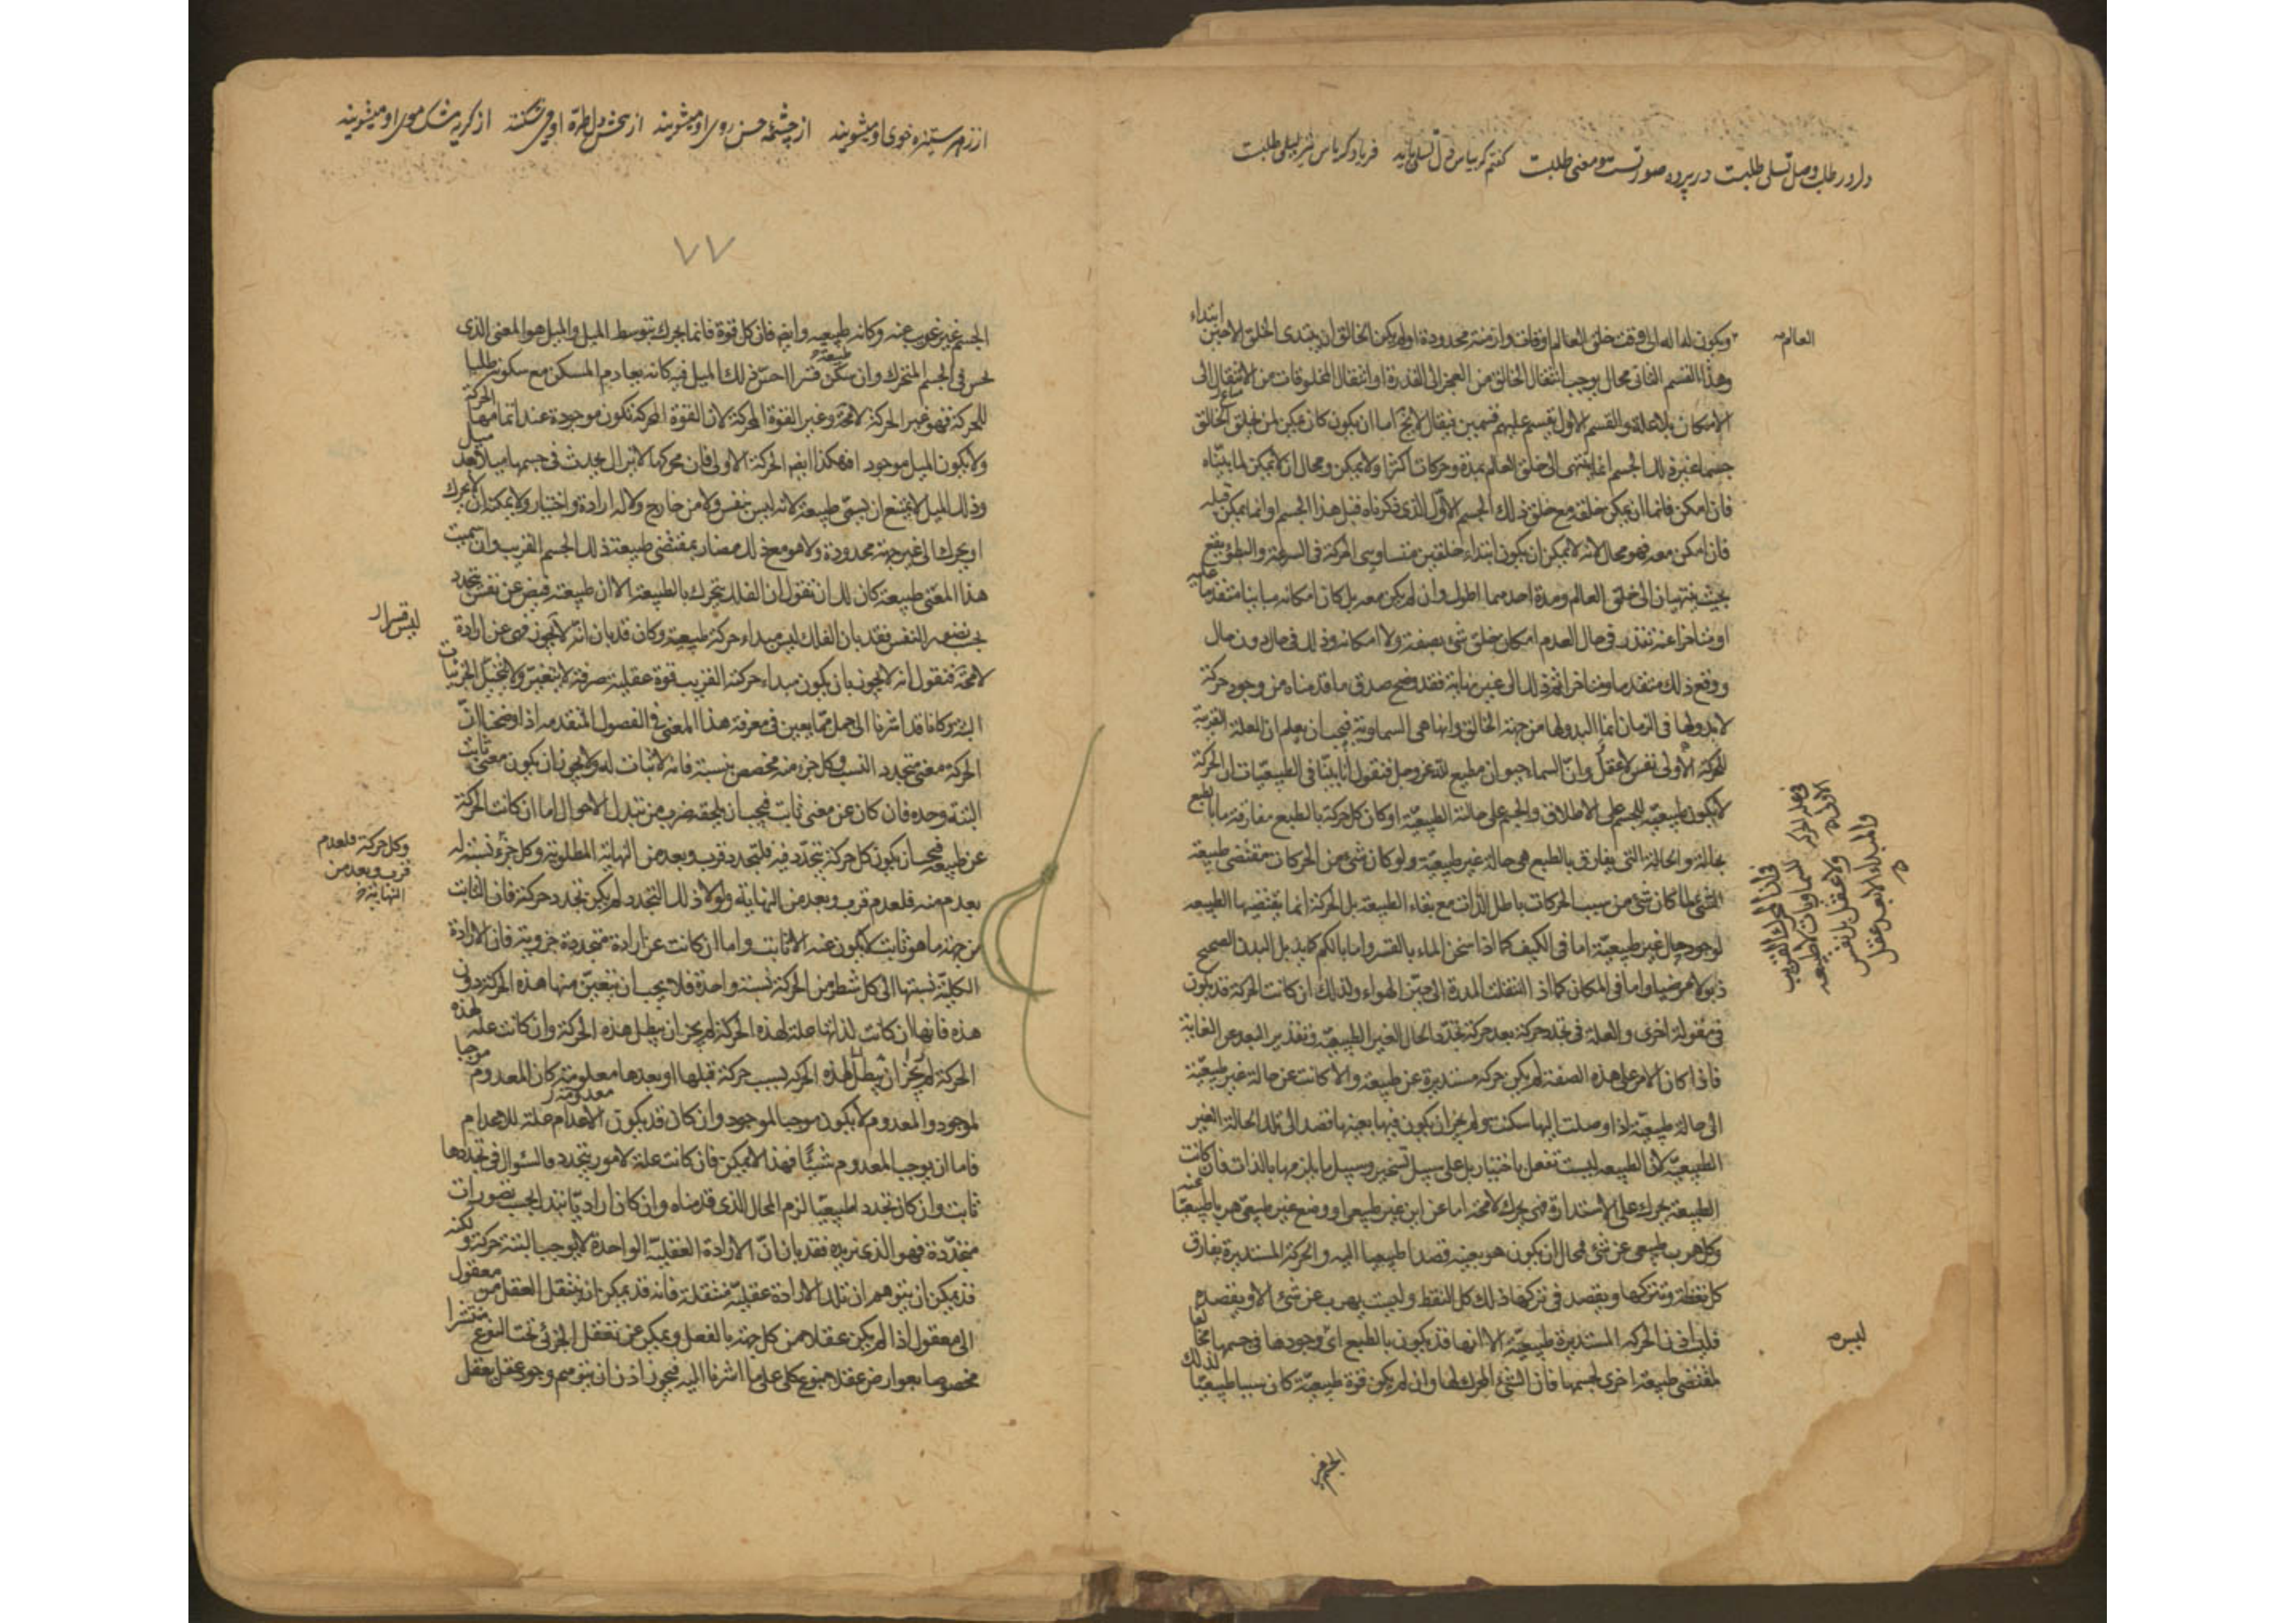 دارد ر طلب وصل تسلی طلبت در پرده صورتست و معنی طلبت
العالم
ابتداء
ويكون له الى وقت خلق العالم اوقات وازمنة محدودة اولم يكن الخالق ان يبتدى الخلق الا حين
وهذا القسم الثانى محال يوجب انتقال الخالق من العجز الى القدرة او انتقال المخلوقات من الامتناع الى
الامكان بلا علة والقسم الاول يقسم عليهم قسمين فيقال لا يخ اما ان يكون كان يمكن لن يخلق الخالق
جسما غير ذلك الجسم انما ينتهى الى خلق العالم بمدة وحركات اكثر او لا يمكن ومحال ان لا يمكن لما بيناه
فان امكن فاما ان يمكن خلقه مع خلق ذلك الجسم الاول الذى ذكرناه قبل هذا الجسم او انما يمكن قبله
فان امكن معه فهو محال لانه لا يمكن ان يكون ابتداء خلقين متساويى الحركة فى السرعة والبطؤ يقع
بحيث ينتهيان الى خلق العالم ومدة احدهما اطول وان لم يكن معه بل كان امكانه مباينا متقدما عليه
او متاخرا عنه تقدر فى حال العدم امكان خلق شئ بصفة ولا امكانه وذلك فى حال دون حال
ووقع ذلك متقدما ومتاخرا ثم ذلك الى غير نهاية فقد وضح صدق ما قدمناه من وجود حركة
لا بدو لها فى الزمان انما البدو لها من جهة الخالق وانها هى السماوية فيجب ان يعلم ان العلة القريبة
للحركة الاولى نفس لا عقل وان السماء حيوان مطيع لله عز وجل فنقول انا بينا فى الطبيعيات ان الحركة
لا تكون طبيعية للجسم على الاطلاق والجسم على حالته الطبيعية اذ كان كل حركة بالطبع مفارقة ما بالطبع
بحالة والحالة التى يفارق بالطبع هى حالة غير طبيعية ولو كان شئ من الحركات مقتضى طبيعة
الشئ لما كان شئ من سبب الحركات باطل الذات مع بقاء الطبيعة بل الحركة انما يقتضيها الطبيعه
لوجود حال غير طبيعية اما فى الكيف كما اذا سخن الماء بالقسر واما بالكم كما يذبل البدن الصحيح
ذبولا مرضيا واما فى المكان كما اذا انتقلت المدرة الى حيز الهواء ولذلك ان كانت الحركة قد يكون
فى مقولة اخرى والعلة فى تجدد حركة بعد حركة تجدد الحال الغير الطبيعية وتقدير البعد عن الغاية
فاذا كان الامر على هذه الصفة لم يكن حركة مستديرة عن طبيعة والا كانت عن حالة غير طبيعية
الى حالة طبيعية اذا وصلت اليها سكنت ولم يجز ان يكون فيها بعينها قصد الى تلك الحالة الغير
الطبيعية لان الطبيعه ليست تفعل باختيار بل على سبيل تسخير وسبيل ما يلزمها بالذات فان كانت
الطبيعة يحرك على الاستدارة فهى يحرك لا محة اما عن اين غير طبيعى او وضع غير طبيعى هربا طبيعيا عنه
وكل هرب طبيعى عن شئ فمحال ان يكون هو بعينه قصدا طبيعيا اليه والحركة المستديرة يفارق
كل نقطة وتتركها ويقصد فى تركها ذلك كل النقط وليست يهرب عن شئ الا ويقصده
فليست اذن الحركه المستديرة طبيعية الا انها قد يكون بالطبع اى وجودها فى جسمها مخالفا
لمقتضى طبيعة اخرى لجسمها فان الشئ المحرك لها وان لم يكن قوة طبيعية كان سببا طبيعيا لذلك
ليس
فى ان المحرك القريب للسماويات لا طبيعه
ولا عقل بل نفس
والمبداء الابعد عقل
الجسم غير
از زهر ستیزه خوی او میشویند از چشمهٔ حسن روی او میشویند از کریه مشک موی او میشویند
٧٧
الجسم غير غريب عنه وكانه طبيعيه وايضم فان كل قوة فانما يحرك بتوسط الميل والميل هو المعنى الذى
يحس فى الجسم المتحرك وان سكن قسرا احس ذلك الميل فيه كانه يعادم المسكن مع سكونه طلبا
للحركة فهو غير الحركة لا محة وغير القوة المحركة لان القوة المحركة تكون موجودة عند اتمامها الحركة
ولا يكون الميل موجودا فهكذا ايضم الحركة الاولى فان محركها لا يزال يحدث فى جسمها ميلا بعد ميل
وذلك الميل لا يمتنع ان يسمى طبيعة لانه ليس بنفس ولا من خارج ولا له ارادة واختيار ولا يمكنه ان لا يحرك
او يحرك الى غير جهة محدودة ولا هو مع ذلك مضاد بمقتضى طبيعة ذلك الجسم القريب وان سميت
هذا المعنى طبيعة كان لك ان تقول ان الفلك يتحرك بالطبيعة الا ان طبيعته فيض عن نفس يتجدد
بحسب تصور النفس فقد بان ان الفلك ليس مبداء حركته طبيعية وكان قد بان انه ليس قسرا فهى عن ارادة
لا محة فنقول انه لا يجوز بان يكون مبداء حركته القريب قوة عقلية صرفة لا يتغير ولا يتخيل الجزئيات
البتة وكانا قد اشرنا الى جمل مما يعين فى معرفة هذا المعنى فى الفصول المتقدمه اذا وضحنا ان
الحركة معنى متجدد النسب وكل جزء منه مخصص بنسبة فانه لا ثبات له ولا يجوز ان يكون معنى ثابت
البتة وحده فان كان عن معنى ثابت فيجب ان يلحقه ضرب من تبدل الاحوال اما ان كانت الحركة
عن طبيعة فيجب ان يكون كل حركة يتجدد فيه فلتجدد قرب وبعد من النهاية المطلوبة وكل جزء نسبة له
وكل حركة فلعدم
قرب وبعد من
النهاية خ
يعدم منه فلعدم قرب وبعد من النهاية ولولا ذلك التجدد لم يكن تجدد حركة فان الثابت
من جهة ما هو ثابت لا يكون عنه الا ثابت واما ان كانت عن ارادة متجددة جزوية فان الارادة
الكلية نسبتها الى كل شطر من الحركة نسبة واحدة فلا يجب ان يتعين منها هذه الحركة دون
هذه فانها ان كانت لذاتها علة لهذه الحركة لم يجز ان يبطل هذه الحركة وان كانت علة لهذه
الحركة لم يجز ان يبطل هذه الحركه بسبب حركة قبلها او بعدها معلومة كان المعدوم موجبا
لموجود والمعدوم لا يكون موجبا لموجود وان كان قد يكون الاعدام علة للاعدام
فاما ان يوجب المعدوم شيئا فهذا لا يمكن فان كانت علة لامور يتجدد فالسؤال فى تجددها
ثابت وان كان تجددا طبيعيا لزم المحال الذى قدمناه وان كان اراديا يتبدل بحسب تصورات
متجددة فهو الذى نريده فقد بان ان الارادة العقلية الواحدة لا يوجب البتة حركة ولكنه
قد يمكن ان يتوهم ان تلك الارادة عقلية منتقلة فانه قد يمكن ان ينتقل العقل من معقول
الى معقول اذا لم يكن عقلا من كل جهة بالفعل ويمكن ان تعقل الجزئى تحت النوع منتشرا
مخصوصا بعوارض عقلا بنوع كلى على ما اشرنا اليه فيجوز اذن ان يتوهم وجود عقل يعقل